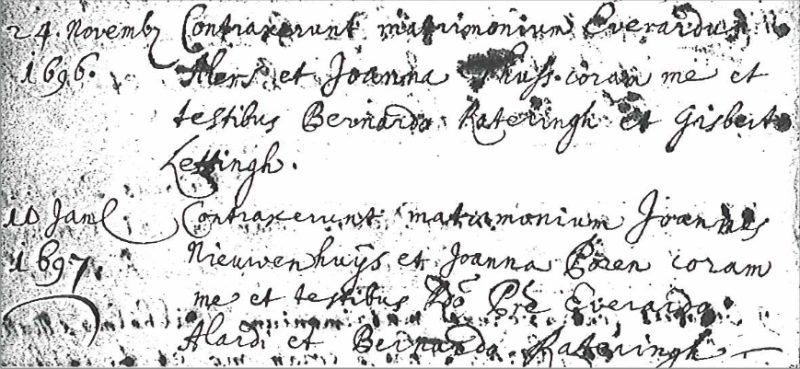 24 Novemb Contraxerunt matrimonium Everardus
1696. Alers et Joanna coram me et
testibus Bernardo Rateringh et Gisberto
Lettingh.
10 Contraxerunt matrimonium Joannes
1697. Nieuwenhuijs et Joanna Coren coram
me et testibus Rdo Everardo
Alardi et Bernardo Rateringh